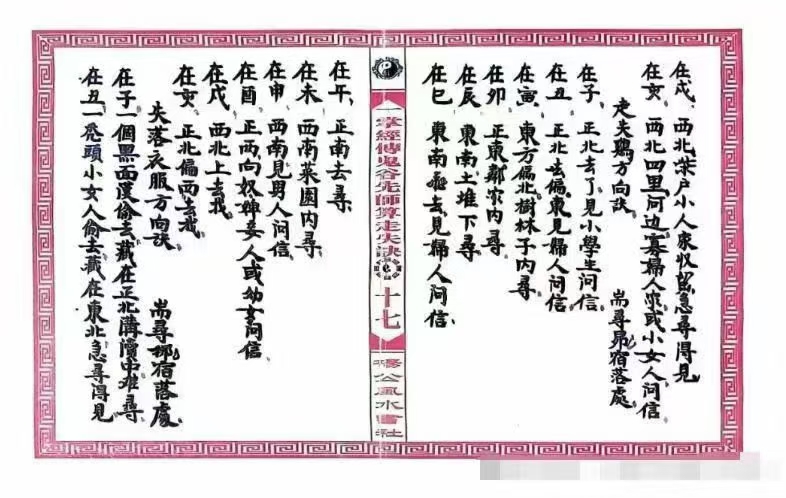 在戌、西北柴戶小人家收留急尋得見
在亥、西北四里河边寡婦人家或小女人問信
走失鷄方向訣　耑尋昴宿落處
在子、正北去了見小學生問信
在丑、正北去偏東見婦人問信
在寅、東方偏北樹林子內尋
在卯　正東鄰家內尋
在辰　東南土堆下尋
在巳　東南去見婦人問信
一掌經傳鬼谷先師算走失訣
十七
楊公風水書社
在午、正南去尋
在未　西南菜園內尋
在申、西南見男人問信
在酉　正西向奴婢妾人或幼女問信
在戌　西北上去找
在亥　正北偏西去找
失落衣服方向訣　耑尋柳宿落處
在子一個黑面漢偷去藏在正北溝瀆中难尋
在丑一禿頭小女人偷去藏在東北急尋得見